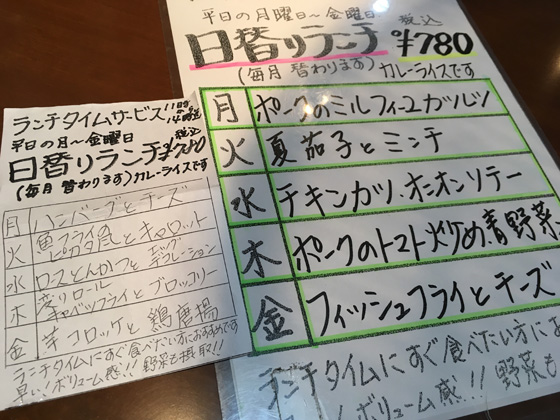 平日の月曜日~金曜日 税込
日替りランチ ¥780
(毎月 替わります) カレーライスです
月 ポークのミルフィーユカツレツ
火 夏茄子とミンチ
水 チキンカツ、オニオンソテー
木 ポークのトマト炒め、青野菜
金 フィッシュフライとチーズ
ランチタイムにすぐ食べたい方に
ボリューム感!! 野菜も
ランチタイムサービス 11時
14時
平日の月~金曜日 税込
日替りランチ ¥780
(毎月 替わります) カレーライスです
月 ハンバーグとチーズ
火 魚フライの
ピカタ風とキャロット
水 ロースとんかつとエッグ
デコレーション
木 ロール
キャベツフライとブロッコリー
金 芋コロッケと鶏唐揚
ランチタイムにすぐ食べたい方におすすめです
早い!ボリューム感!! 野菜も摂取!!